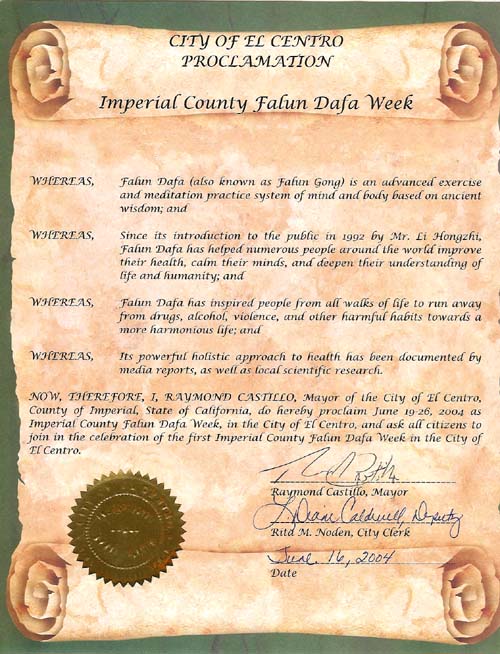 CITY OF EL CENTRO
PROCLAMATION
Imperial County Falun Dafa Week
WHEREAS, Falun Dafa (also known as Falun Gong) is an advanced exercise
and meditation practice system of mind and body based on ancient
wisdom; and
WHEREAS, Since its introduction to the public in 1992 by Mr. Li Hongzhi,
Falun Dafa has helped numerous people around the world improve
their health, calm their minds, and deepen their understanding of
life and humanity; and
WHEREAS, Falun Dafa has inspired people from all walks of life to run away
from drugs, alcohol, violence, and other harmful habits towards a
more harmonious life; and
WHEREAS, Its powerful holistic approach to health has been documented by
media reports, as well as local scientific research.
NOW, THEREFORE, I, RAYMOND CASTILLO, Mayor of the City of El Centro,
County of Imperial, State of California, do hereby proclaim June 19-26, 2004 as
Imperial County Falun Dafa Week, in the City of El Centro, and ask all citizens to
join in the celebration of the first Imperial County Falun Dafa Week in the City of
El Centro.
Raymond Castillo, Mayor
L. Diane Caldwell, Deputy
Rita M. Noden, City Clerk
June 16, 2004
Date